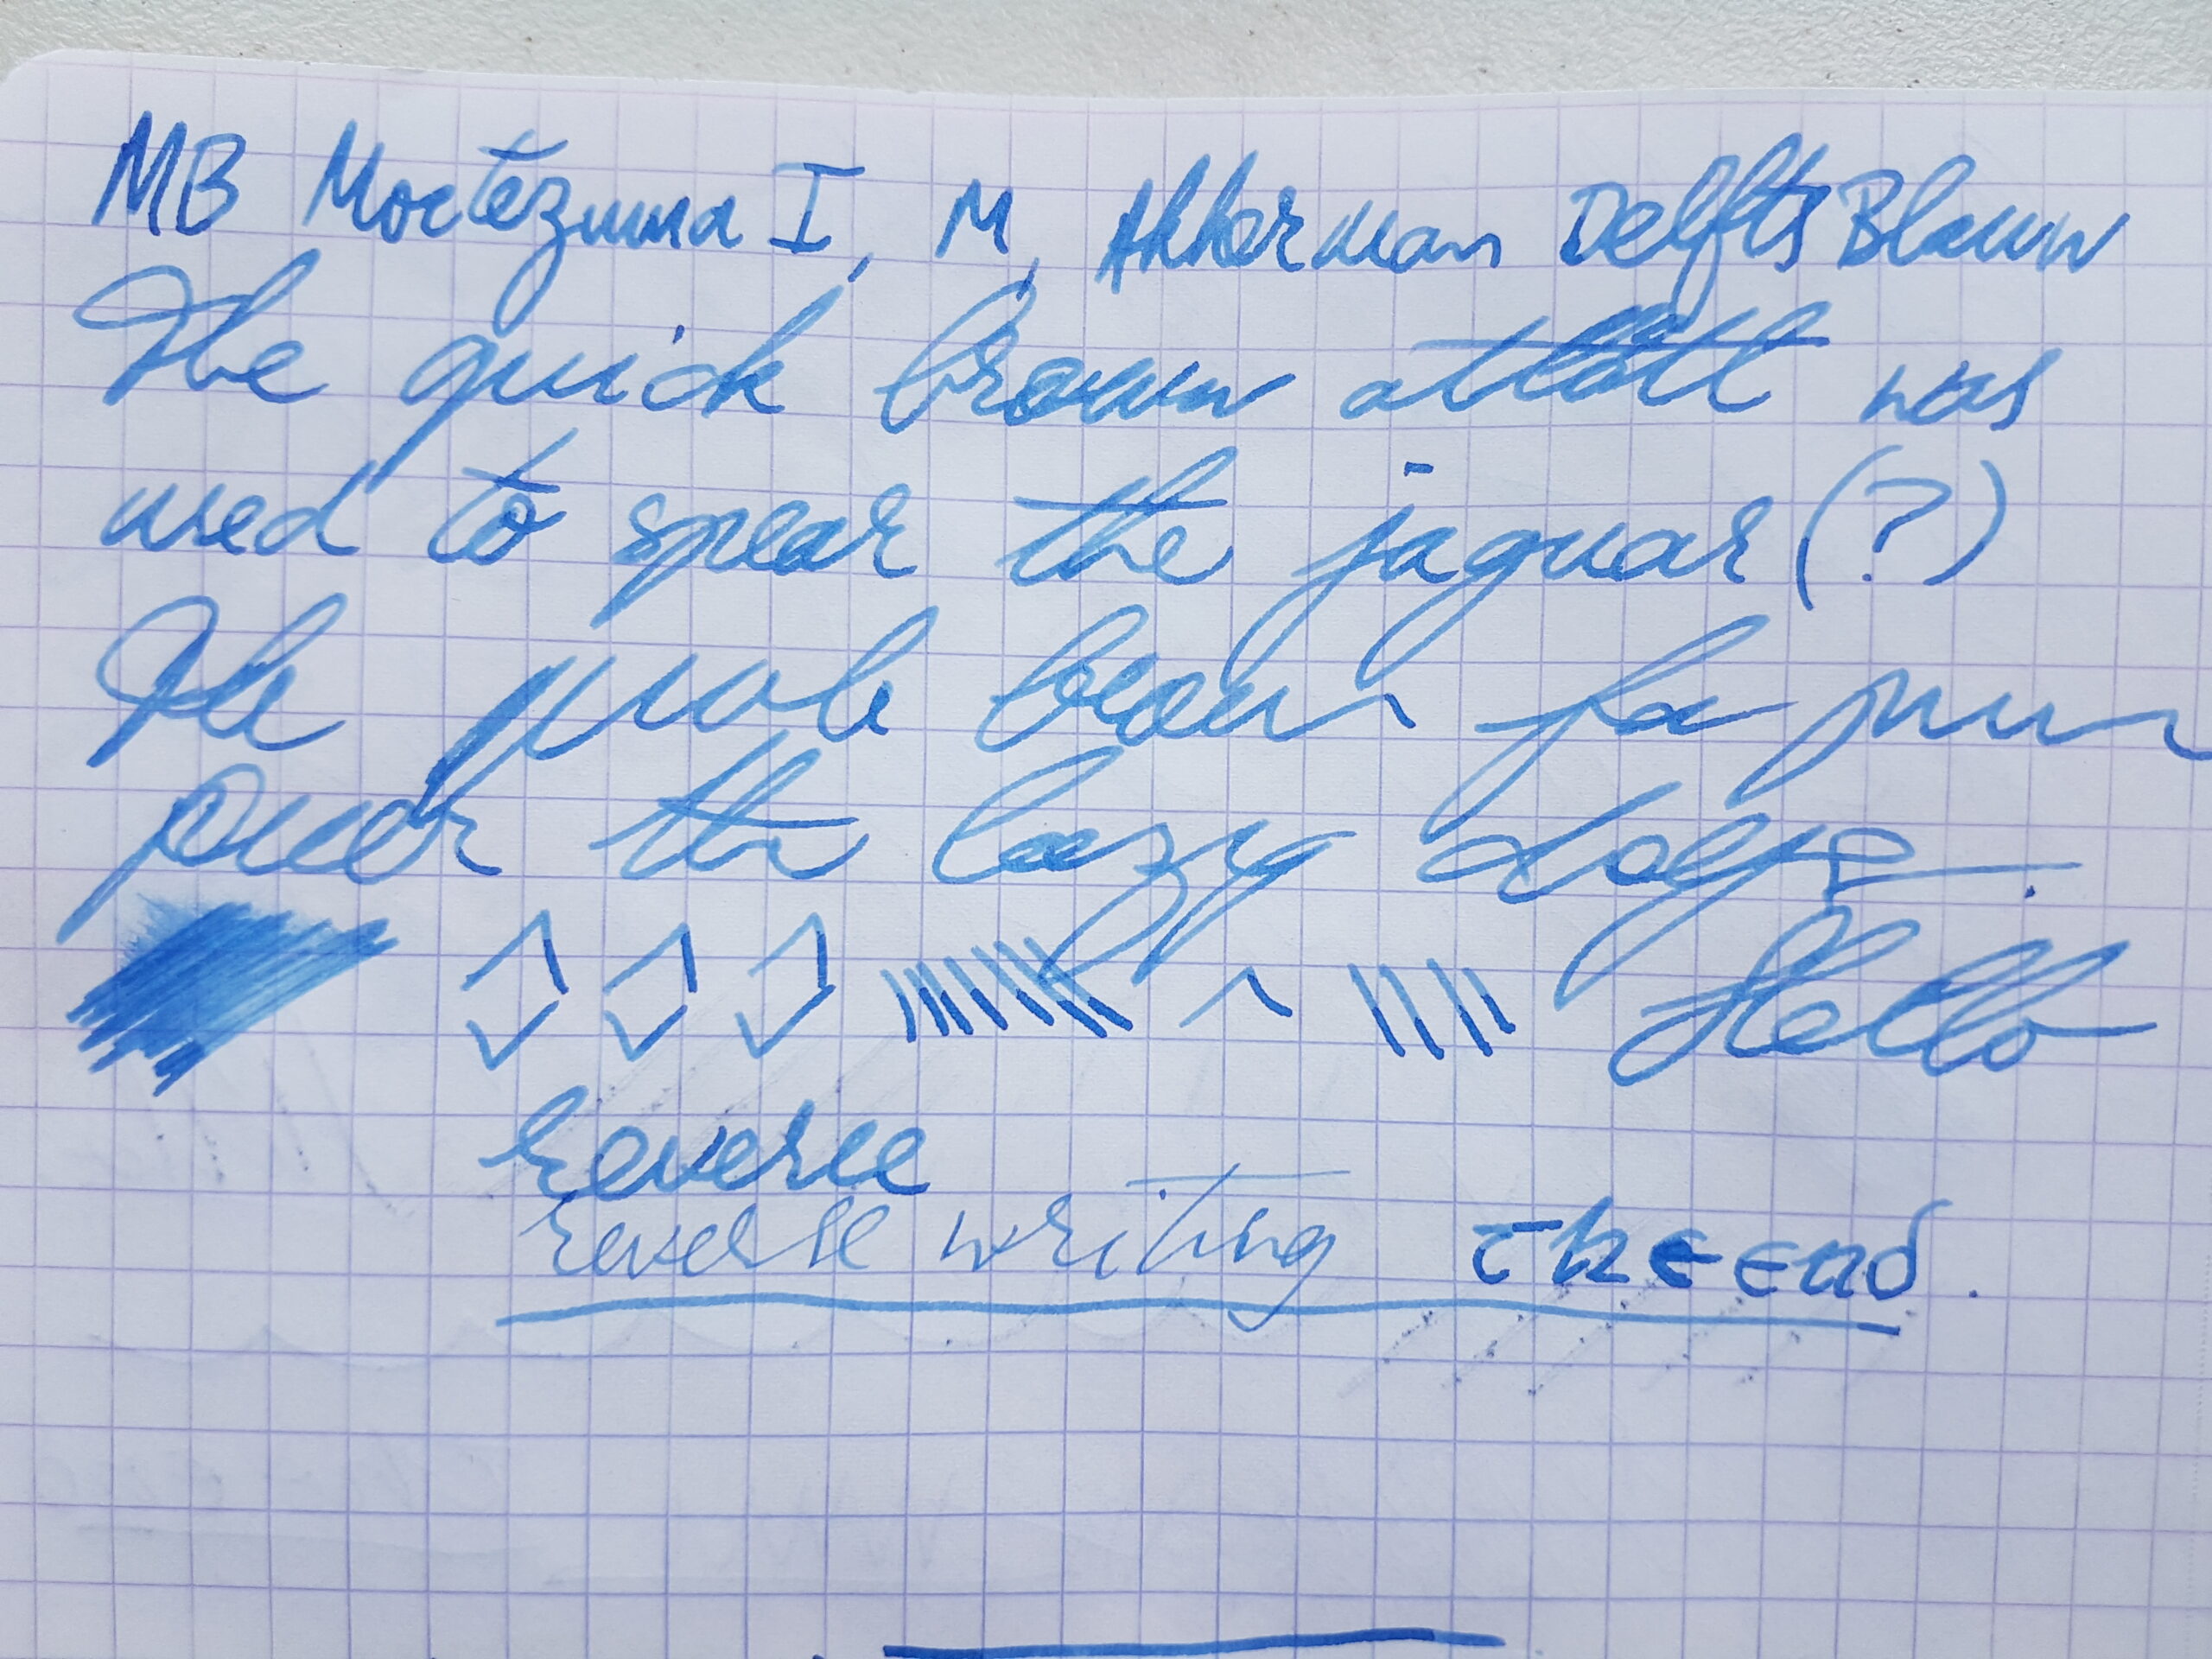 MB Moctezuma I, M, Akkerman Delfts Blauw
The quick brown atlatl was
used to spear the jaguar (?)
The brown fox jum
the lazy dog.
Hello
Reverse
Reverse writing The end.